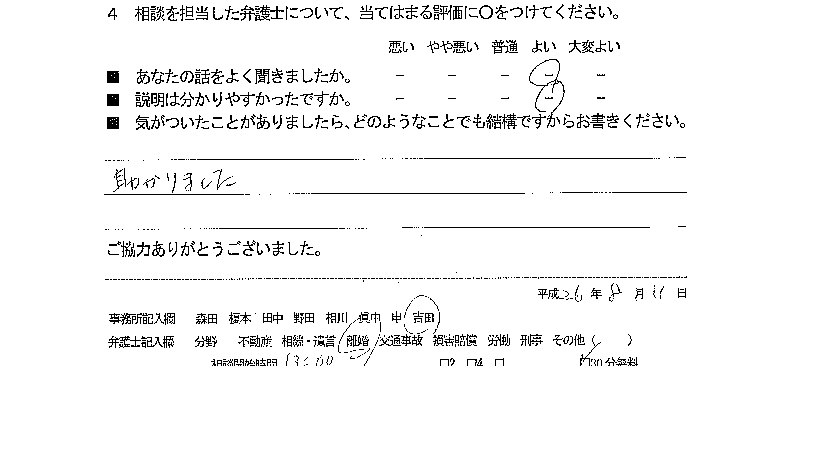 4 相談を担当した弁護士について、当てはまる評価に○をつけてください。
悪い やや悪い 普通 よい 大変よい
■ あなたの話をよく聞きましたか。 － － － － －
■ 説明は分かりやすかったですか。 － － － － －
■ 気がついたことがありましたら、どのようなことでも結構ですからお書きください。
助かりました
ご協力ありがとうございました。
平成26年8月11日
事務所記入欄 森田 榎本 田中 野田 相川 眞中 申 吉田
弁護士記入欄 分野 不動産 相続・遺言 離婚 交通事故 損害賠償 労働 刑事 その他（ ）
相談開始時間 13:00 □2 □4 □ 30分無料